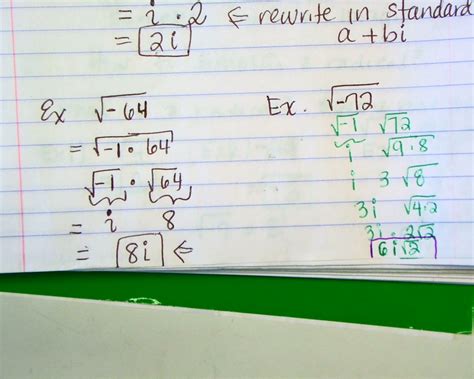 = i · 2 ⇐ rewrite in standard
= 2i a + bi
Ex √-64
= √-1 · 64
√-1 · √64
= i 8
= 8i ⇐
Ex. √-72
√-1 √72
i √9·8
i 3 √8
3i √4·2
3i · 2√2
6i√2